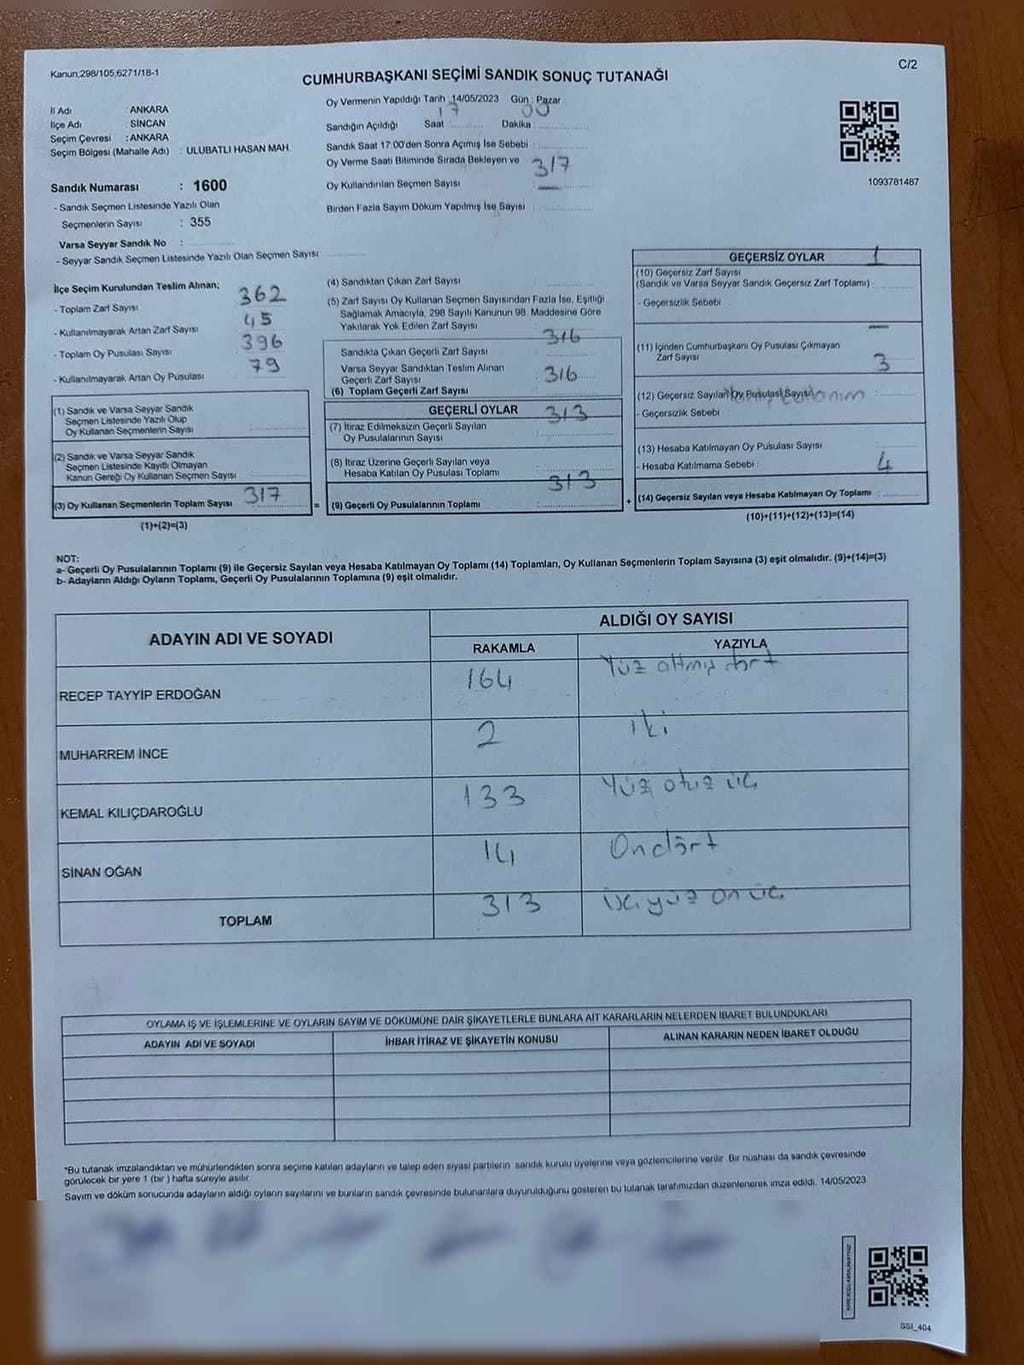 Kanun:298/105,6271/18-1
C/2
CUMHURBAŞKANI SEÇİMİ SANDIK SONUÇ TUTANAĞI
İl Adı ANKARA
İlçe Adı SİNCAN
Seçim Çevresi : ANKARA
Seçim Bölgesi (Mahalle Adı) : ULUBATLI HASAN MAH.
Sandık Numarası : 1600
- Sandık Seçmen Listesinde Yazılı Olan
Seçmenlerin Sayısı : 355
Varsa Seyyar Sandık No :
- Seyyar Sandık Seçmen Listesinde Yazılı Olan Seçmen Sayısı
Oy Vermenin Yapıldığı Tarih 14/05/2023 Gün : Pazar
Sandığın Açıldığı Saat 17 Dakika 00
Sandık Saat 17:00'den Sonra Açımış İse Sebebi
Oy Verme Saati Bitiminde Sırada Bekleyen ve
Oy Kullandırılan Seçmen Sayısı 317
Birden Fazla Sayım Döküm Yapılmış İse Sayısı
1093781487
İlçe Seçim Kurulundan Teslim Alınan;
- Toplam Zarf Sayısı 362
- Kullanılmayarak Artan Zarf Sayısı 45
- Toplam Oy Pusulası Sayısı 396
- Kullanılmayarak Artan Oy Pusulası 79
(1) Sandık ve Varsa Seyyar Sandık
Seçmen Listesinde Yazılı Olup
Oy Kullanan Seçmenlerin Sayısı
(2) Sandık ve Varsa Seyyar Sandık
Seçmen Listesinde Kayıtlı Olmayan
Kanun Gereği Oy Kullanan Seçmen Sayısı
(3) Oy Kullanan Seçmenlerin Toplam Sayısı 317 =
(1)+(2)=(3)
(4) Sandıktan Çıkan Zarf Sayısı
(5) Zarf Sayısı Oy Kullanan Seçmen Sayısından Fazla İse, Eşitliği
Sağlamak Amacıyla, 298 Sayılı Kanunun 98. Maddesine Göre
Yakılarak Yok Edilen Zarf Sayısı
Sandıkta Çıkan Geçerli Zarf Sayısı 316
Varsa Seyyar Sandıktan Teslim Alınan
Geçerli Zarf Sayısı
(6) Toplam Geçerli Zarf Sayısı 316
GEÇERLİ OYLAR
(7) İtiraz Edilmeksizin Geçerli Sayılan
Oy Pusulalarının Sayısı 313
(8) İtiraz Üzerine Geçerli Sayılan veya
Hesaba Katılan Oy Pusulası Toplamı
(9) Geçerli Oy Pusulalarının Toplamı 313 +
GEÇERSİZ OYLAR
(10) Geçersiz Zarf Sayısı 1
(Sandık ve Varsa Seyyar Sandık Geçersiz Zarf Toplamı)
- Geçersizlik Sebebi
(11) İçinden Cumhurbaşkanı Oy Pusulası Çıkmayan
Zarf Sayısı
(12) Geçersiz Sayılan Oy Pusulası Sayısı 3
- Geçersizlik Sebebi
(13) Hesaba Katılmayan Oy Pusulası Sayısı
- Hesaba Katılmama Sebebi
(14) Geçersiz Sayılan veya Hesaba Katılmayan Oy Toplamı 4
(10)+(11)+(12)+(13)=(14)
NOT:
a- Geçerli Oy Pusulalarının Toplamı (9) ile Geçersiz Sayılan veya Hesaba Katılmayan Oy Toplamı (14) Toplamları, Oy Kullanan Seçmenlerin Toplam Sayısına (3) eşit olmalıdır. (9)+(14)=(3)
b- Adayların Aldığı Oyların Toplamı, Geçerli Oy Pusulalarının Toplamına (9) eşit olmalıdır.
ADAYIN ADI VE SOYADI ALDIĞI OY SAYISI
RAKAMLA YAZIYLA
RECEP TAYYİP ERDOĞAN 164 Yüz altmış dört
MUHARREM İNCE 2 iki
KEMAL KILIÇDAROĞLU 133 Yüz otuz üç
SİNAN OĞAN 14 Ondört
TOPLAM 313 Üçyüz on üç
OYLAMA İŞ VE İŞLEMLERİNE VE OYLARIN SAYIM VE DÖKÜMÜNE DAİR ŞİKAYETLERLE BUNLARA AİT KARARLARIN NELERDEN İBARET BULUNDUKLARI
ADAYIN ADI VE SOYADI İHBAR İTİRAZ VE ŞİKAYETİN KONUSU ALINAN KARARIN NEDEN İBARET OLDUĞU
*Bu tutanak imzalandıktan ve mühürlendikten sonra seçime katılan adayların ve talep eden siyasi partilerin sandık kurulu üyelerine veya gözlemcilerine verilir. Bir nüshası da sandık çevresinde
görülecek bir yere 1 (bir ) hafta süreyle asılır.
Sayım ve döküm sonucunda adayların aldığı oyların sayılarını ve bunların sandık çevresinde bulunanlara duyurulduğunu gösteren bu tutanak tarafımızdan düzenlenerek imza edildi. 14/05/2023
GSI_404